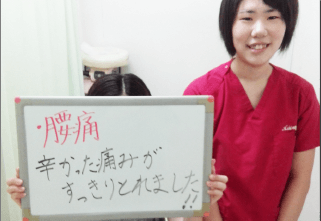 ・腰痛
辛かった痛みが
すっきりとれました!!